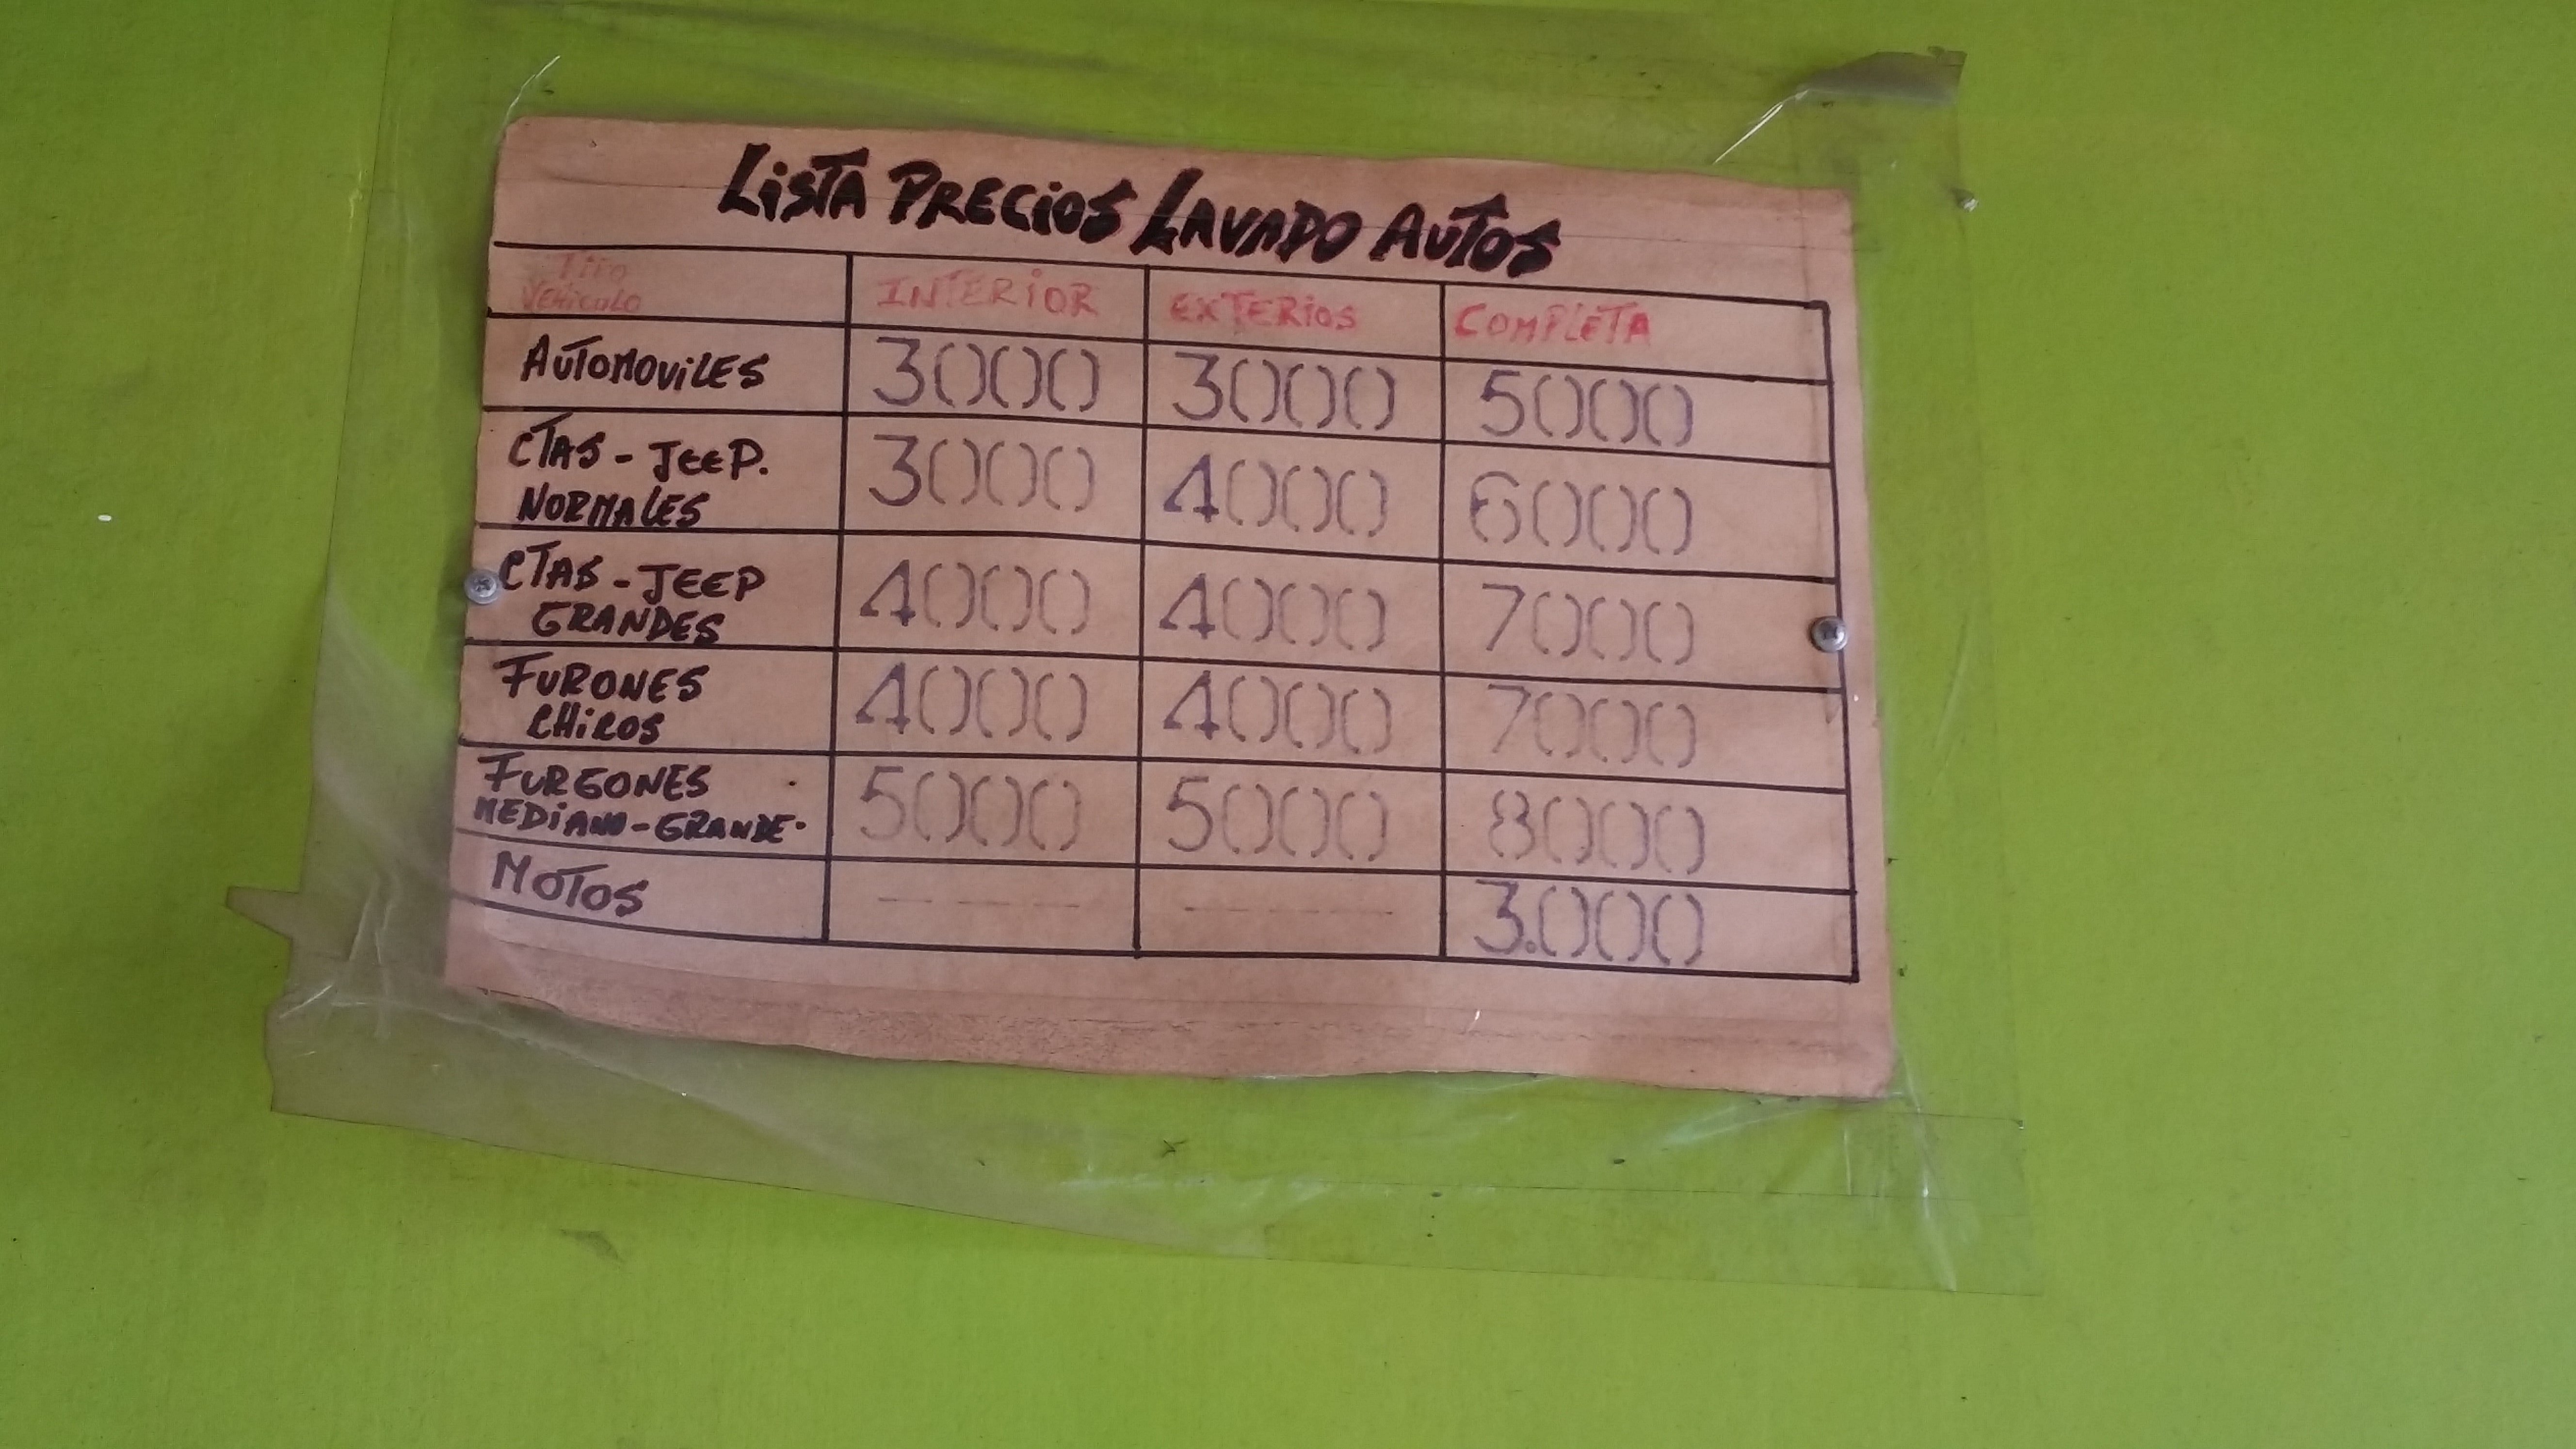 LISTA PRECIOS LAVADO AUTOS
TIPO
VEHICULO
INTERIOR
EXTERIOS
COMPLETA
AUTOMOVILES
3000
3000
5000
CTAS - JEEP.
NORMALES
3000
4000
6000
CTAS - JEEP
GRANDES
4000
4000
7000
FURONES
CHICOS
4000
4000
7000
FURGONES
MEDIANO - GRANDE.
5000
5000
8000
MOTOS
- - - -
- - - -
3.000